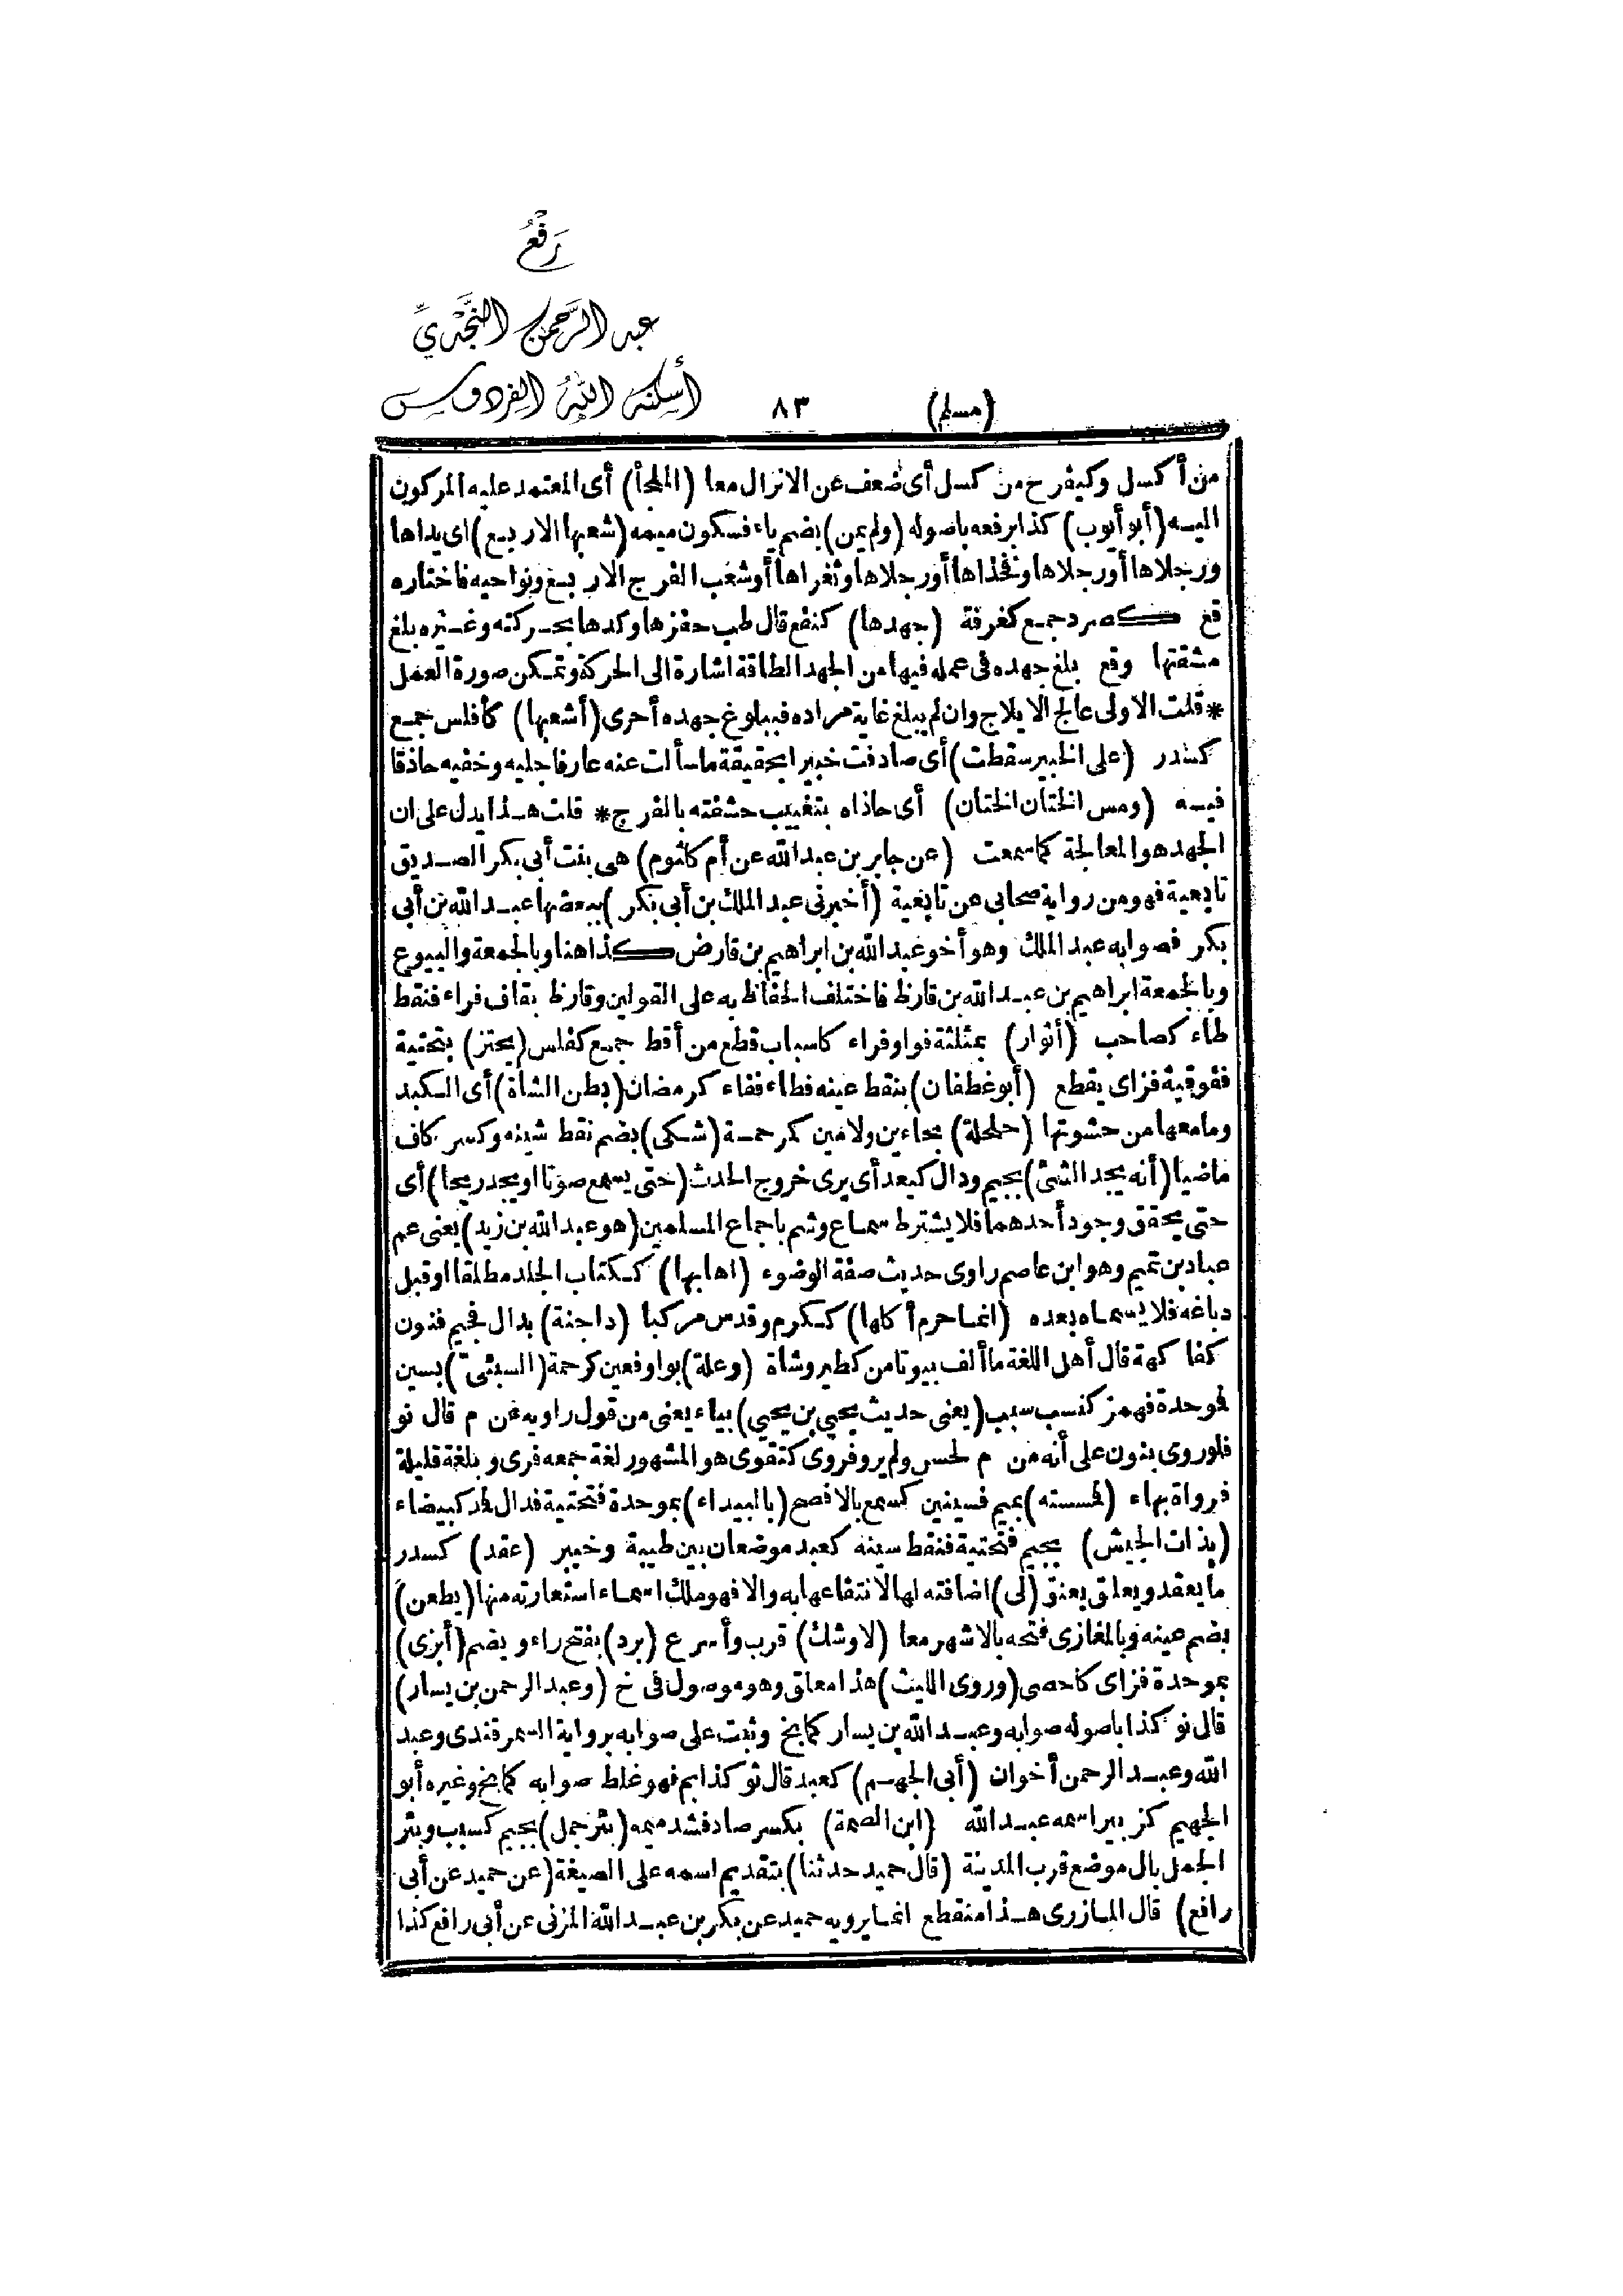 رَفْعُ
عبد الرَّحمن النَّجْديِّ
أسكنه اللهُ الفردوس
(مسلم) ٨٣
من أكسل وكيفرح من كسل أى ضعف عن الانزال معا (الملجأ) أى المعتمد عليه المركون
اليه (أبو أيوب) كذا برفعه باصوله (ولم يمن) بضم ياء فسكون ميمه (شعبها الاربع) اى يداها
ورجلاها أو رجلاها وفخذاها أو رجلاها وشفراها أو شعب الفرج الاربع ونواحيه فاختاره
قع كصرد جمع كغرفة (جهدها) كنفع قال طب حفزها وكدها بحركته وغيره بلغ
مشقتها وقع بلغ جهده فى عمله فيها من الجهد الطاقة اشارة الى الحركة وتمكن صورة العمل
* قلت الاولى عالج الايلاج وان لم يبلغ غاية مراده فببلوغ جهده أحرى (أشعبها) كأفلس جمع
كسدر (على الخبير سقطت) أى صادفت خبيرا بحقيقة ما سألت عنه عارفا جليه وخفيه حاذقا
فيه (ومس الختان الختان) أى حاذاه بتغييب حشفته بالفرج * قلت هذا يدل على ان
الجهد هو المعالجة كما سمعت (عن جابر بن عبد الله عن أم كلثوم) هى بنت أبى بكر الصديق
تابعية فهو من رواية صحابى عن تابعية (أخبرنى عبد الملك بن أبى بكر) ببعضها عبد الله بن أبى
بكر فصوابه عبد الملك وهو أخو عبد الله بن ابراهيم بن قارض كذا هنا وبالجمعة والبيوع
وبالجمعة ابراهيم بن عبد الله بن قارظ فاختلف الحفاظ به على القولين وقارظ بقاف فراء فنقط
طاء كصاحب (أثوار) بمثلثة فواو فراء كاسباب قطع من أقط جمع كفلس (يحتز) بتحتية
ففوقية فزاى يقطع (أبو غطفان) بنقط عينه فطاء ففاء كرمضان (بطن الشاة) أى الكبد
وما معها من حشوتها (حلحلة) بحاءين ولامين كرحمة (شكى) بضم نقط شينه وكسر كاف
ماضيا (أنه يجد الشئ) بجيم ودال كيعد أى يرى خروج الحدث (حتى يسمع صوتا او يجد ريحا) أى
حتى يحقق وجود أحدهما فلا يشترط سماع وشم باجماع المسلمين (هو عبد الله بن زيد) يعنى عم
عباد بن تميم وهو ابن عاصم راوى حديث صفة الوضوء (اهابها) ككتاب الجلد مطلقا او قبل
دباغه فلا يسماه بعده (انما حرم أكلها) ككرم وقدس مركبا (داجنة) بدال فجيم فنون
كفاكهة قال أهل اللغة ما ألف بيوتا من كطير وشاة (وعلة) بواو فعين كرحمة (السبئىّ) بسين
فموحدة فهمز كنسب سبب (يعنى حديث يحيى بن يحيى) بياء يعنى من قول راويه عن م قال نو
فلو روى بنون على أنه من م لحسن ولم يرو فروى كتقوى هو المشهور لغة جمعه فرى وبلغة قليلة
فرواة بهاء (فمسسته) بميم فسينين كسمع بالافصح (بالبيداء) بموحدة فتحتية فدال فمد كبيضاء
(بذات الجيش) بجيم فتحتية فنقط سينه كعبد موضعان بين طيبة وخيبر (عقد) كسدر
ما يعقد ويعلق بعنق (لى) اضافته لها لانتفاعها به والا فهو ملك اسماء استعارته منها (يطعن)
بضم عينه وبالمغازى فتحه بالاشهر معا (لاوشك) قرب وأسرع (برد) بفتح راء ويضم (أبزى)
بموحدة فزاى كاحصى (وروى الليث) هذا معلق وهو موصول فى خ (وعبد الرحمن بن يسار)
قال نو كذا باصوله صوابه وعبد الله بن يسار كما بخ وثبت على صوابه برواية السمرقندى وعبد
الله وعبد الرحمن أخوان (أبى الجهم) كعبد قال نو كذا بم فهو غلط صوابه كما بخ وغيره أبو
الجهيم كزبير اسمه عبد الله (ابن الصمة) بكسر صاد فشد ميمه (بئر جمل) بجيم كسبب وبئر
الجمل بال موضع قرب المدينة (قال حميد حدثنا) بتقديم اسمه على الصيغة (عن حميد عن أبى
رافع) قال المازرى هذا منقطع انما يرويه حميد عن بكر بن عبد الله المزنى عن أبى رافع كذا